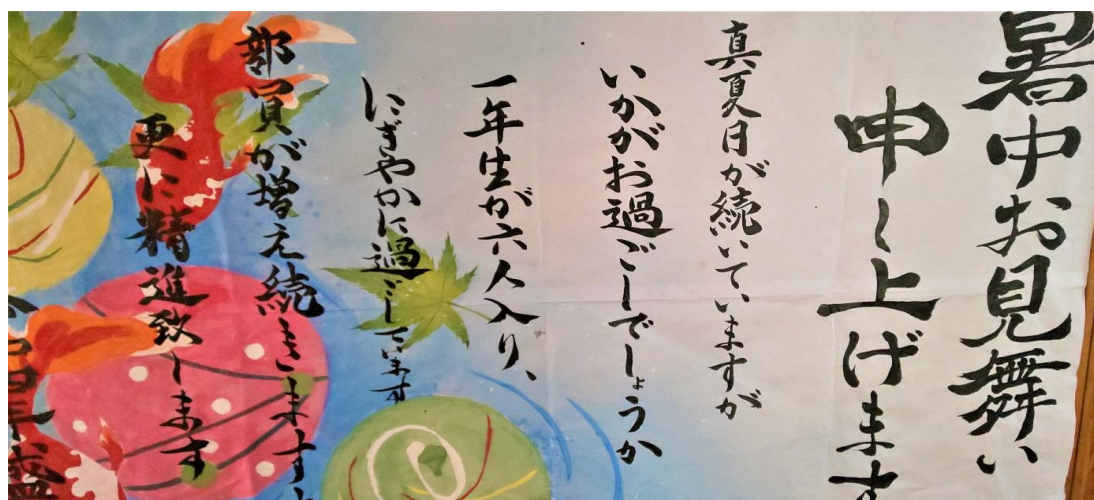 暑中お見舞い
申し上げます
真夏日が続いていますが
いかがお過ごしでしょうか
一年生が六人入り、
にぎやかに過ごしています
部員が増え続きます
更に精進致します
年盛